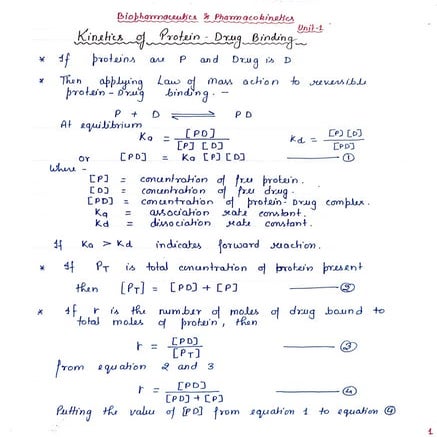 Biopharmaceutics & Pharmacokinetics
Unit-1
Kinetics of Protein - Drug Binding
* If proteins are P and Drug is D
* Then applying Law of mass action to reversible
protein-Drug binding. -
P + D ⇌ PD
At equilibrium
Ka = [PD] / [P] [D]    Kd = [P] [D] / [PD]
or [PD] = Ka [P] [D] ——— ①
Where -
[P] = concentration of free protein.
[D] = concentration of free drug.
[PD] = concentration of protein-Drug complex.
Ka = association rate constant.
Kd = dissociation rate constant.
If Ka > Kd indicates forward reaction.
* If PT is total concentration of protein present
then [PT] = [PD] + [P] ——— ②
* If r is the number of moles of drug bound to
total moles of protein, then
r = [PD] / [PT] ——— ③
from equation 2 and 3
r = [PD] / [PD] + [P] ——— ④
Putting the value of [PD] from equation 1 to equation ④
1